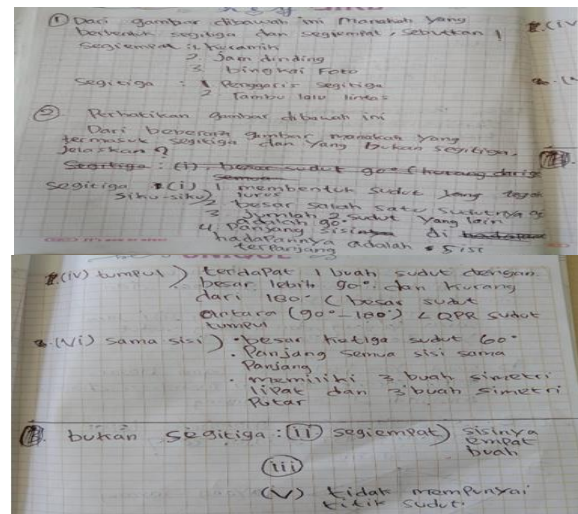 ① Dari gambar dibawah ini Manakah yang
berbentuk segitiga dan segiempat, sebutkan!
Segiempat : 1. keramik
2 Jam dinding
3. bingkai Foto
Segitiga : 1 Penggaris segitiga
2 Rambu lalu lintas
② Perhatikan gambar dibawah ini
Dari beberapa gambar manakah yang
termasuk segitiga dan yang bukan segitiga,
jelaskan ?
Segitiga : (i), besar sudut 90° (kurang dari
Semua
segitiga (i) 1 membentuk sudut yang tegak
Siku-siku) lurus
2 besar salah satu sudutnya 90
3 Jumlah 2 sudut yang lain
adalah 90°
4 Panjang sisi di
hadapannya adalah sisi
terpanjang
2. (iv) tumpul) terdapat 1 buah sudut dengan
besar lebih 90° dan kurang
dari 180° (besar sudut
antara (90°-180°) ∠ QPR sudut
tumpul
3. (Vi) sama sisi) • besar ketiga sudut 60°
• Panjang semua sisi sama
Panjang
• memiliki 3 buah simetri
lipat dan 3 buah simetri
Putar
bukan segitiga : (ii) segiempat) sisinya
empat
buah
(iii)
(V) tidak mempunyai
titik sudut.